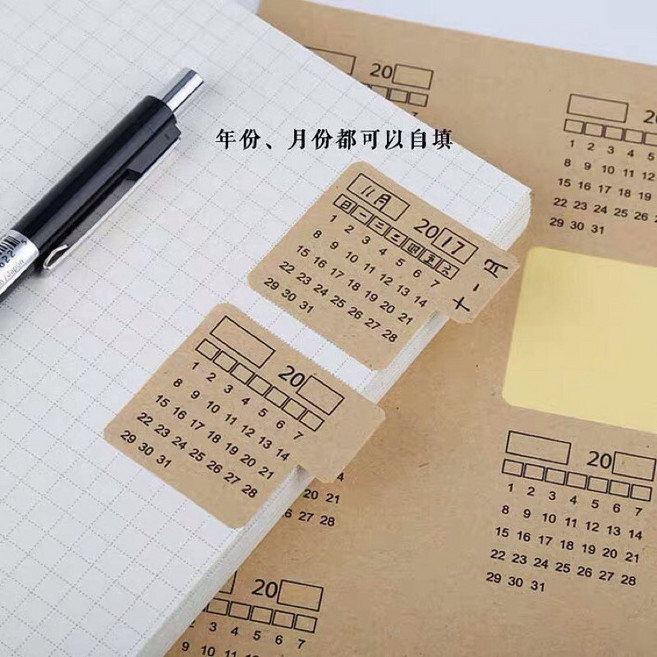 年份、月份都可以自填
20
20
1 2 3 4 5
8 9 10 11 12
15 16 17 18 19
22 23 24 25 26
29 30 31
11月 2017
日一二三四五六
1 2 3 4 5 6 7
8 9 10 11 12 13 14
15 16 17 18 19 20 21
22 23 24 25 26 27 28
29 30 31
十一月
20
1 2 3 4 5 6 7
8 9 10 11 12 13 14
15 16 17 18 19 20 21
22 23 24 25 26 27 28
29 30 31
20 21
26 27 28
20
1 2 3 4 5 6 7
8 9 10 11 12 13 14
15 16 17 18 19 20 21
22 23 24 25 26 27 28
29 30 31
20
1 2 3 4 5 6 7